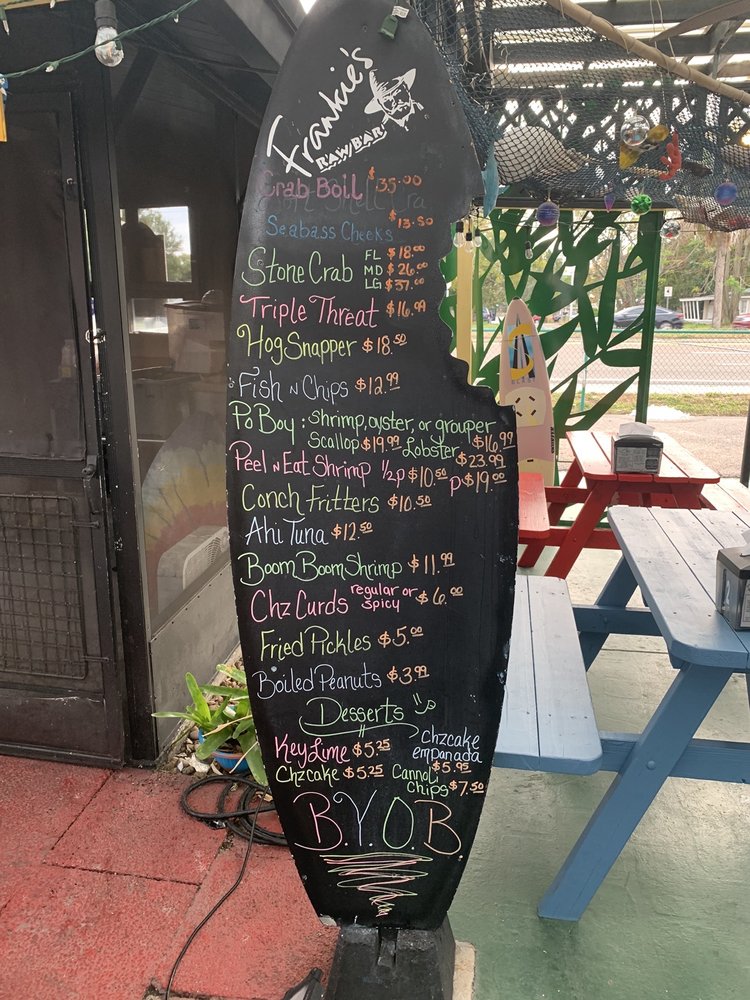 Frankie's
RAW BAR
Crab Boil $35.00
Seabass Cheeks $13.50
Stone Crab FL $18.00
MD $26.00
LG $37.00
Triple Threat $16.99
Hog Snapper $18.50
Fish N Chips $12.99
Po Boy: shrimp, oyster, or grouper $16.99
Scallop $19.99 Lobster $23.99
Peel N Eat Shrimp 1/2p $10.50 p $19.00
Conch Fritters $10.50
Ahi Tuna $12.50
Boom Boom Shrimp $11.99
Chz Curds regular or spicy $6.00
Fried Pickles $5.00
Boiled Peanuts $3.99
Desserts
Key Lime $5.25
Chzcake empanada $5.95
Chzcake $5.25
Cannoli Chips $7.50
B.Y.O.B